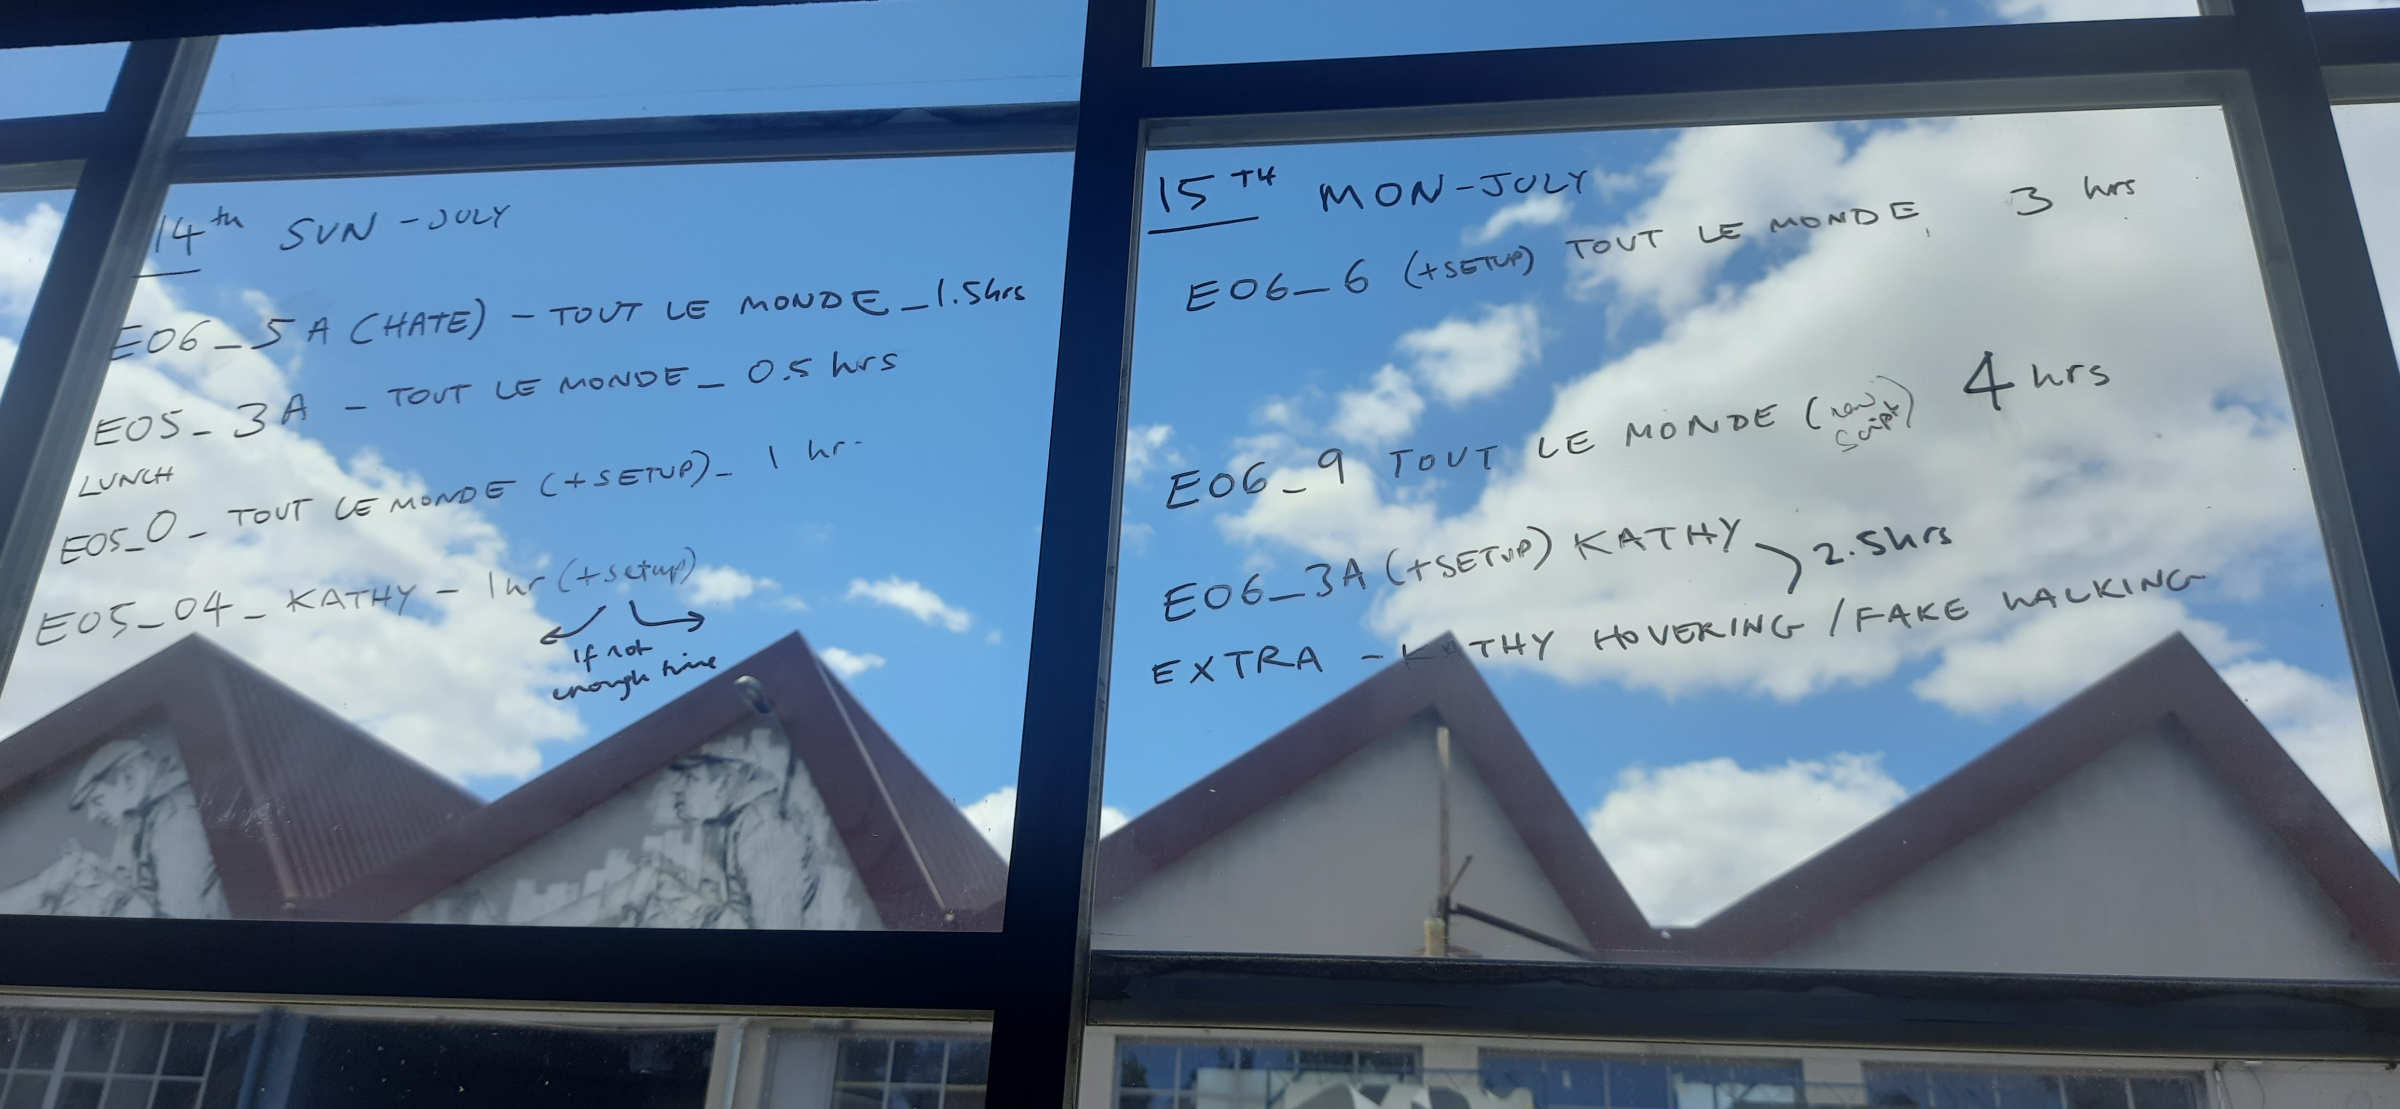 14th SUN - JULY
E06_5A (HATE) - TOUT LE MONDE _ 1.5hrs
E05_3A - TOUT LE MONDE _ 0.5 hrs
LUNCH
E05_0 - TOUT LE MONDE (+SETUP) _ 1 hr.
E05_04 _ KATHY - 1hr (+setup)
If not
enough time
15TH MON-JULY
E06_6 (+SETUP) TOUT LE MONDE 3 hrs
E06_9 TOUT LE MONDE (new script) 4 hrs
E06_3A (+SETUP) KATHY 2.5hrs
EXTRA - KATHY HOVERING / FAKE WALKING